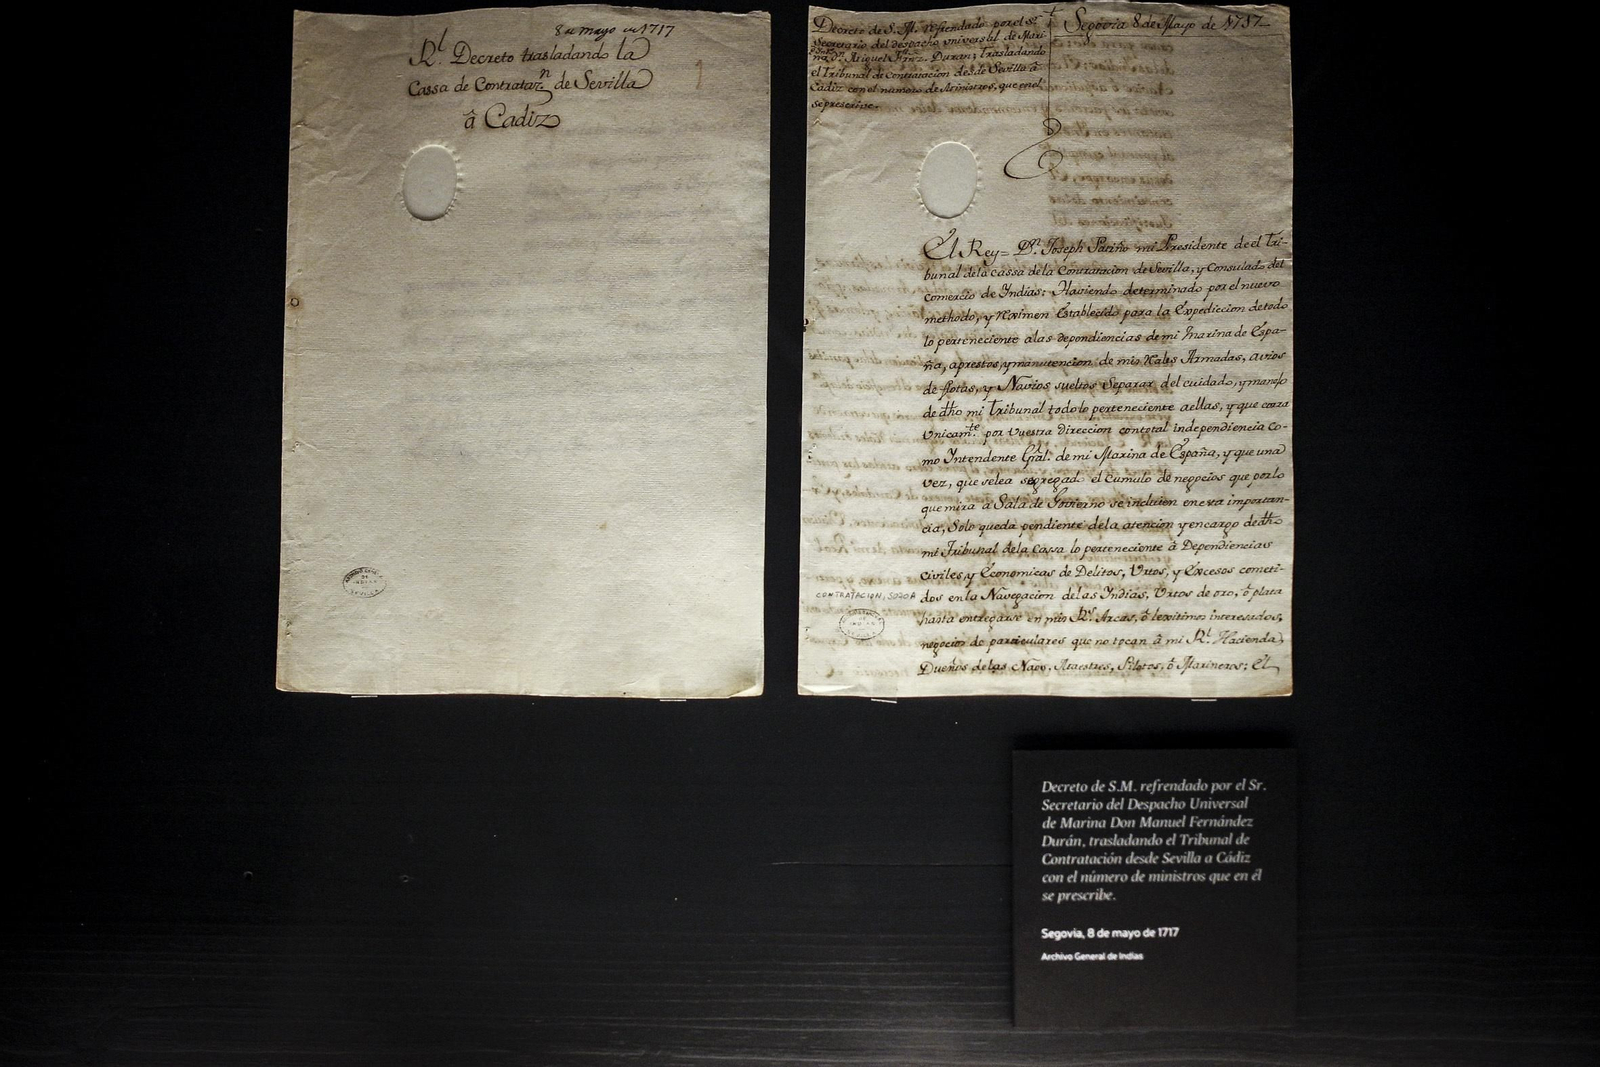 8 de mayo de 1717
Rl. Decreto trasladando la
Cassa de Contratazn. de Sevilla
â Cadiz
1
ARCHIVO GENERAL
DE
INDIAS
SEVILLA
Decreto de S. M. refrendado por el Sr.
Secretario del despacho universal de Mari-
na Dn. Miguel Frnz. Duran; Trasladando
el Tribunal de Contratacion desde Sevilla â
Cadiz con el numero de Ministros, que en el
se prescrive.
Segovia 8 de Mayo de 1717
El Rey= Dn. Joseph Patiño mi Presidente de el Tri-
bunal de la cassa de la Contratacion de Sevilla, y Consulado del
comercio de Indias: Haviendo determinado por el nuevo
methodo, y Reximen Establecido para la Expediccion de todo
lo perteneciente a las dependiencias de mi Marina de Espa-
ña, aprestos, y manutencion de mis Rales Armadas, avios
de flotas, y Navios sueltos Separar del cuidado, y manejo
de dho mi Tribunal todo lo perteneciente a ellas, y que corra
Unicamte. por Vuestra direccion con total independiencia co-
mo Intendente Gral. de mi Marina de España, y que una
vez, que se lea segregado el cumulo de negocios que por lo
que mira â Sala de Govierno se incluien en esta importan-
cia, Solo queda pendiente de la atencion y encargo de dho
mi Tribunal de la Cassa lo perteneciente â Dependiencias
civiles, y Economicas de Delitos, Urtos, y Excesos cometi-
dos en la Navegacion de las Indias, Urtos de oro, ô plata
hasta entregarse en mis Rs. Arcas, ô lexitimos interesados,
negocios de particulares que no tocan â mi Rl. Hacienda,
Dueños de las Naos, Maestres, Pilotos, ô Marineros; El
CONTRATACION, 5020A
INDIAS
Decreto de S.M. refrendado por el Sr.
Secretario del Despacho Universal
de Marina Don Manuel Fernández
Durán, trasladando el Tribunal de
Contratación desde Sevilla a Cádiz
con el número de ministros que en él
se prescribe.
Segovia, 8 de mayo de 1717
Archivo General de Indias